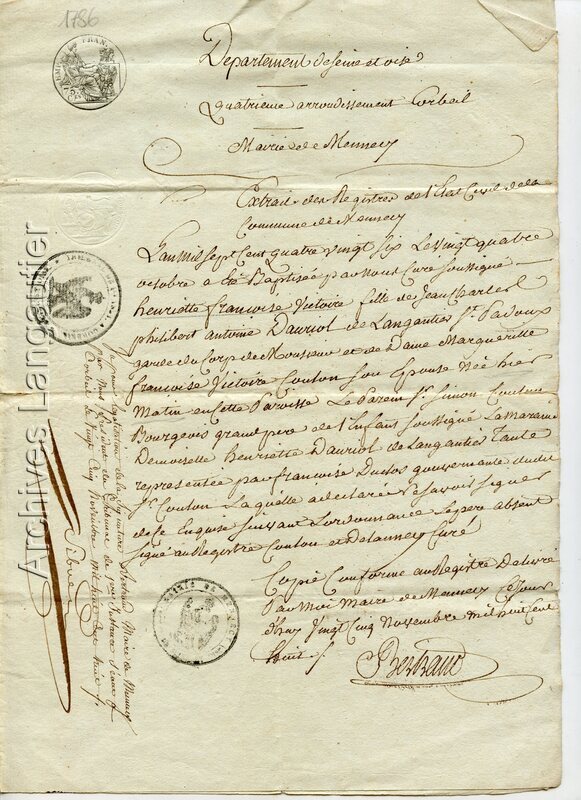 1786
Departement de Seine et oise
Quatrieme arrondissement Corbeil
Mairie de Mennecy
Extrait des Registres de l'Etat Civil de la
Commune de Mennecy
L'an Mil Sept Cent quatre vingt Six le vingt quatre
octobre a été Baptisée par nous Curé soussigné
henriette françoise Victoire fille de Jean Charles
philibert antoine Dauriol de Langautier Sr. Padoux
garde du Corp de Monsieur et de Dame Marguerite
francoise Victoire Couton son Epouse Née hier
Matin en cette Paroisse Le Parein Sr. Simon Couton
Bourgeois grand pere de l'Enfant soussigné La Maraine
Demoiselle henriette Dauriol de Langautier Tante
représentée par francoise Duclos gouvernante dudit
Sr. Couton Laquelle a declaré ne savoir signer
de ce Enquise suivant Lordonnance Le pere absent
signé au Registre Couton et Delauney Curé
Copie Conforme au Registre Delivré
Par Moi Maire de Mennecy Ce Jour
d'huy Vingt Cinq Novembre mil huit Cent
Bertrand
de la signature Bertrand Maire de Mennecy
par Nous Président du Tribunal de premiere Instance séant
Corbeil le Vingt Cinq Novembre mil huit Cent
Archives Langautier